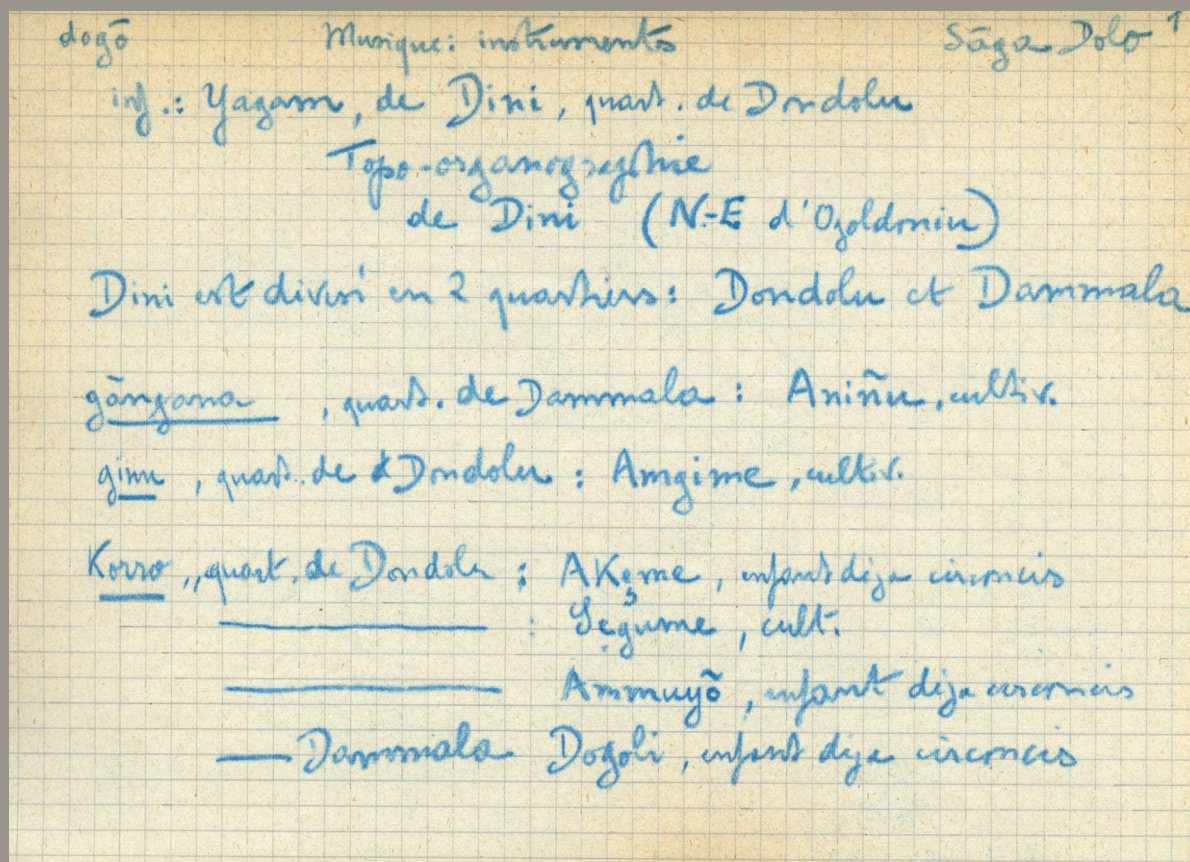 dogõ Musique: instruments Sãga Dolo 1
inf.: Yagam, de Dini, quart. de Dondolu
Topo-organographie
de Dini (N.-E d'Ogoldoniu)
Dini est divisé en 2 quartiers: Dondolu et Dammala
gãngana, quart. de Dammala : Aniñu, cultiv.
ginu, quart. de Dondolu : Amgime, cultiv.
Korro, quart. de Dondolu : AKẹme, enfant déja circoncis
——— : Sẹgume, cult.
——— Ammuyõ, enfant déja circoncis
— Dammala Dogoli, enfant déja circoncis